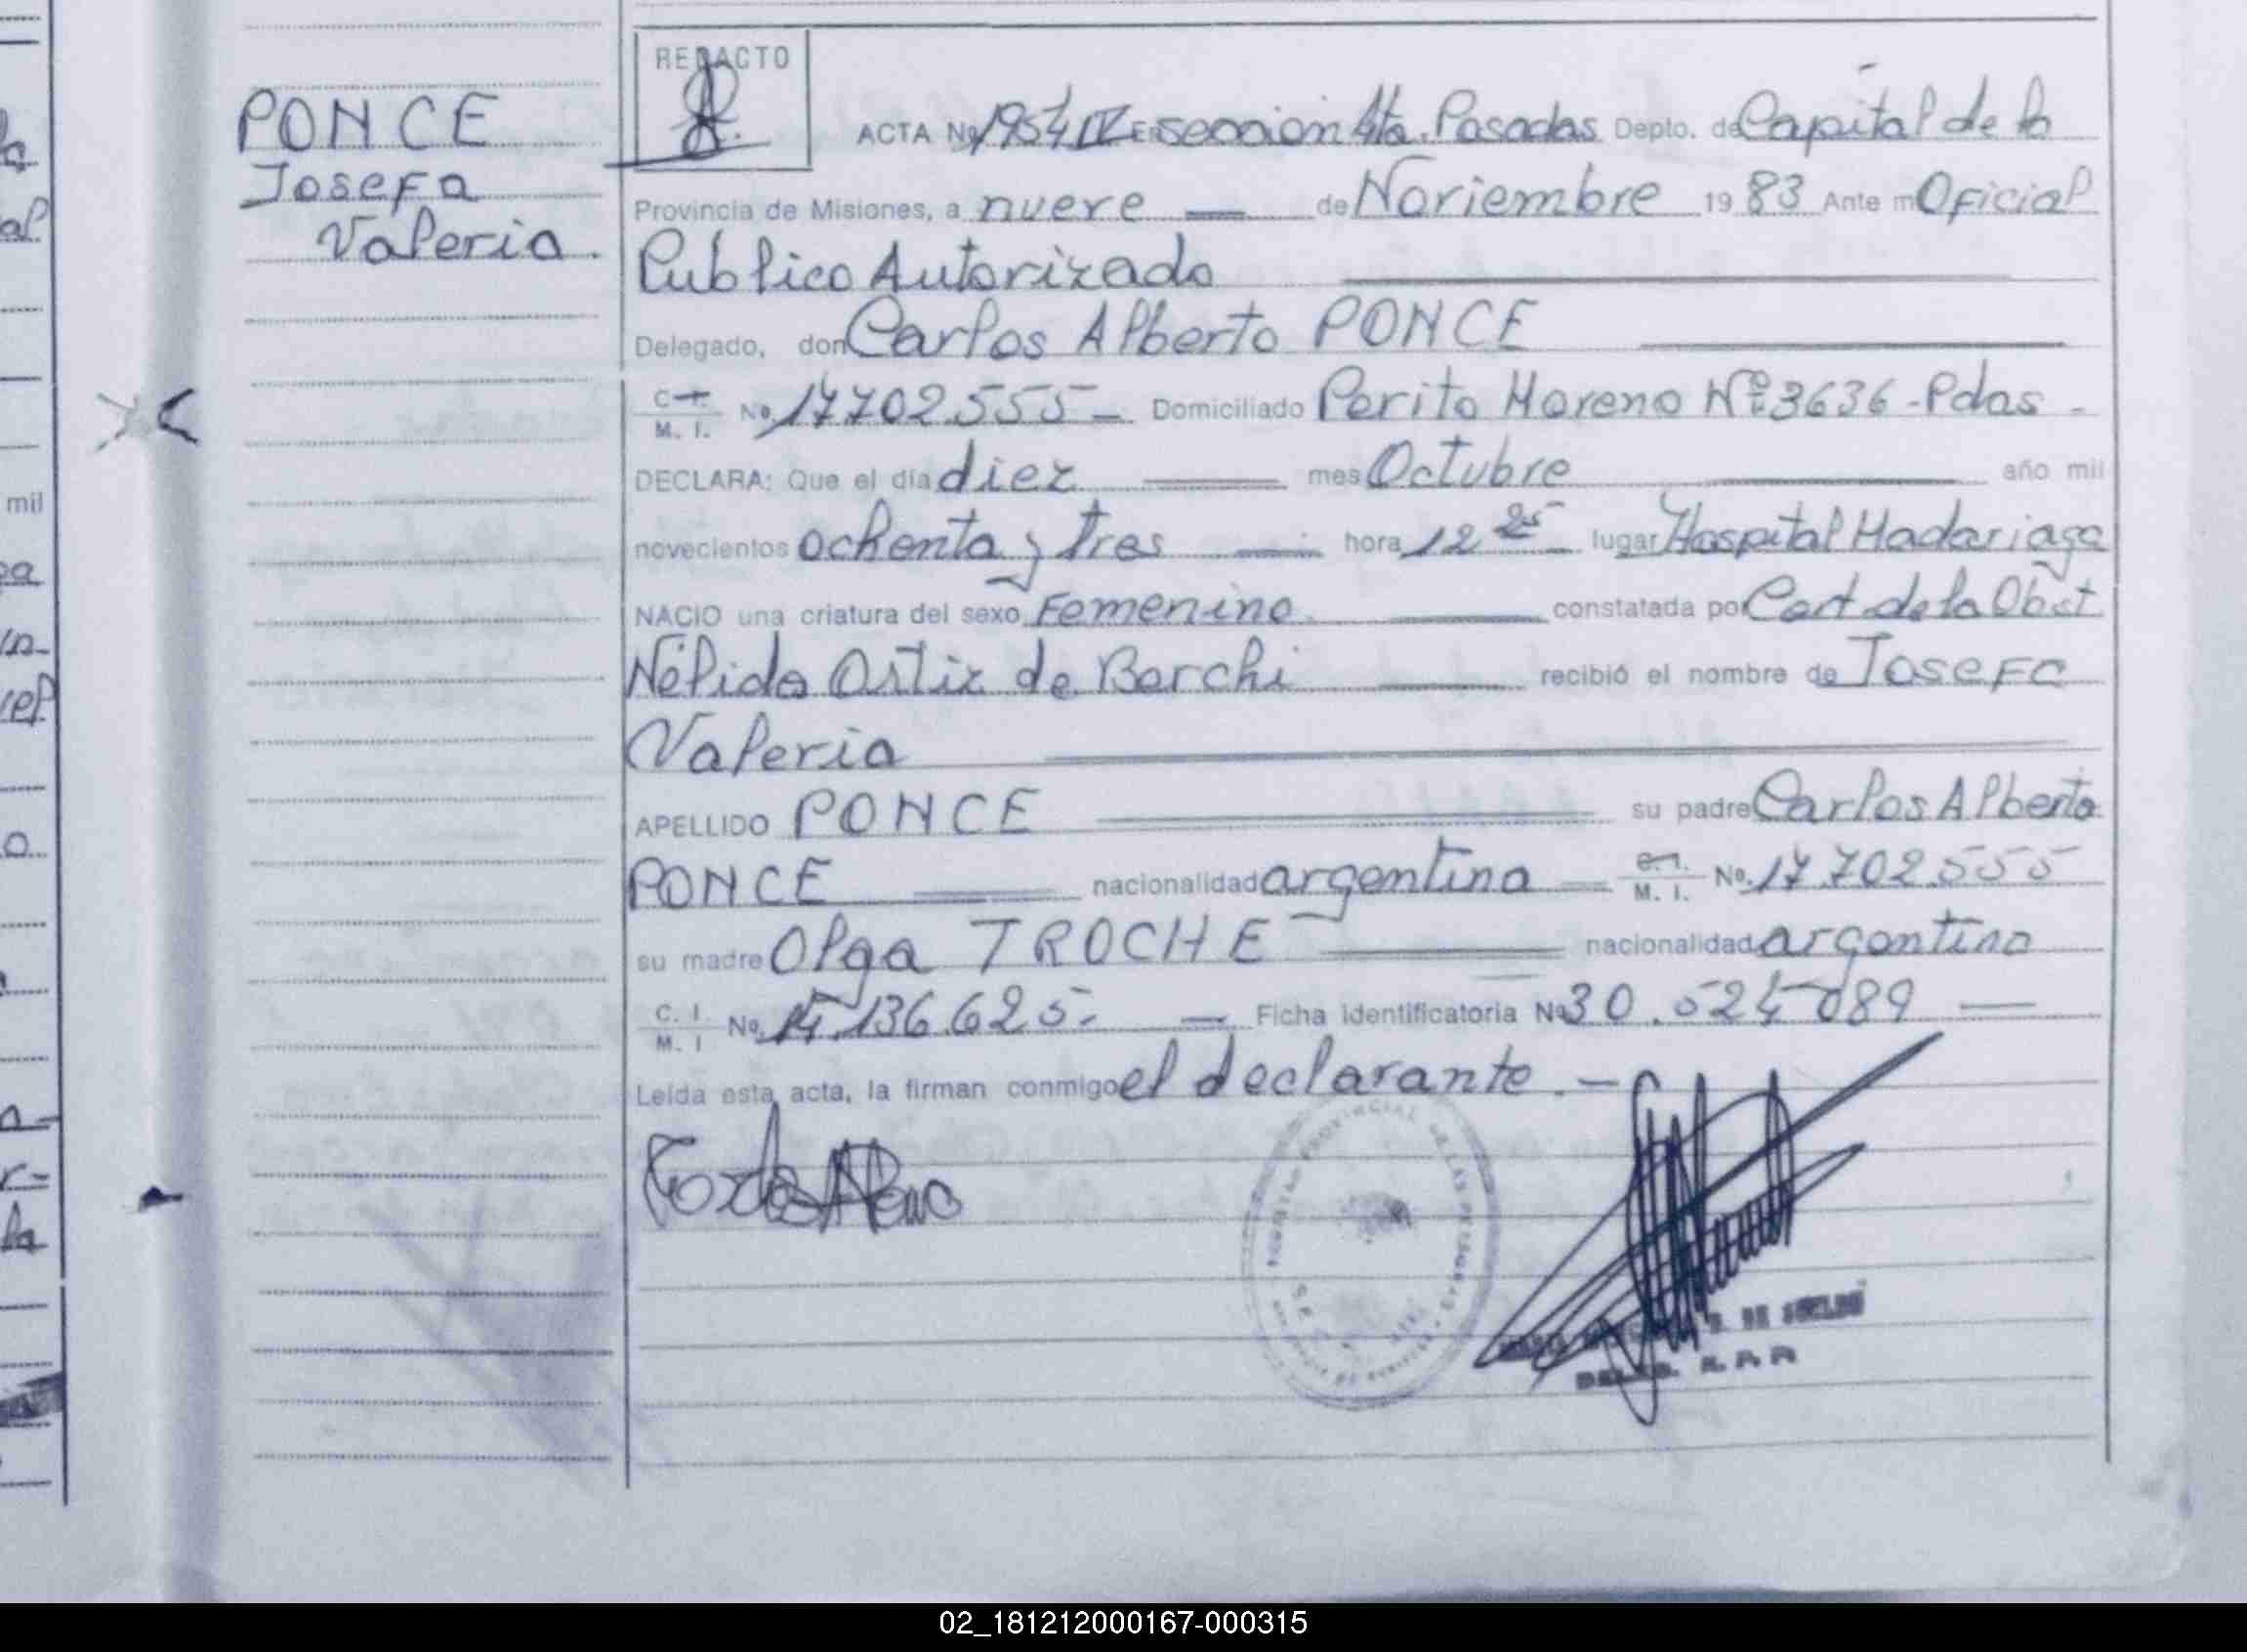 PONCE
Josefa
Valeria.
REDACTO
ACTA Nº 1954 IV En sección 4ta. Posadas Depto. de Capital de la
Provincia de Misiones, a nueve de Noviembre 1983 Ante mí Oficial
Publico Autorizado
Delegado, don Carlos Alberto PONCE
C. I. M. I. Nº 17.702.555 Domiciliado Perito Moreno Nº 3636 - Pdas -
DECLARA: Que el día diez mes Octubre año mil
novecientos ochenta y tres hora 12 25 lugar Hospital Madariaga
NACIO una criatura del sexo Femenino constatada por Cert. de la Obst
Nélida Ortiz de Borchi recibió el nombre de Josefa
Valeria
APELLIDO PONCE su padre Carlos Alberto
PONCE nacionalidad argentina M. I. Nº 17.702.555
su madre Olga TROCHE nacionalidad argentina
C. I. M. I Nº 136.625. Ficha identificatoria Nº 30.524.089
Leída esta acta, la firman conmigo el declarante. -
DELEG. R. P. P.
mil
02_181212000167-000315